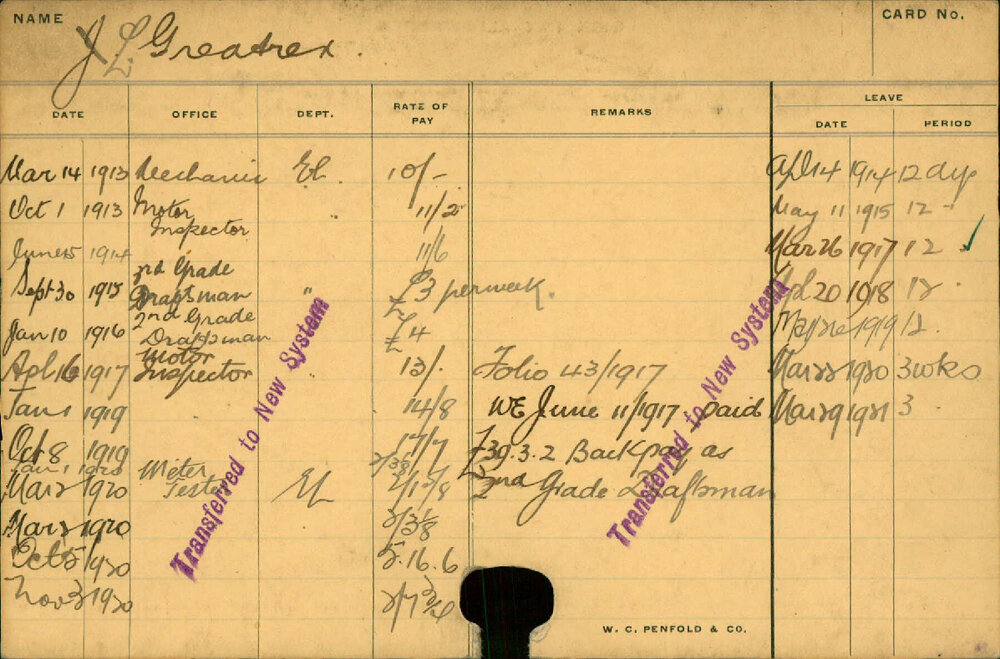 NAME
J L Greatrex.
CARD No.
DATE OFFICE DEPT. RATE OF PAY REMARKS LEAVE
DATE PERIOD
Mar 14 1913 Mechanic EL. 10/- Apl 14 1914 12 dys
Oct 1 1913 Motor Inspector " 11/2 May 11 1915 12 -
June 15 1914 11/6 Mar 26 1917 12 ✓
Sept 30 1915 3rd Grade Draftsman " £3 per week. Apl 20 1918 12.
Jan 10 1916 2nd Grade Draftsman £4 1919 12.
Apl 16 1917 Motor Inspector 13/. Folio 43/1917 Mar 22 1920 3 wks
Jan 1 1919 14/8 WE June 11/1917 Paid Mar 29 1921 3
Oct 8 1919 17/7 £39.3.2 Back pay as
Jan 1 1920
Mar 2 1920 Meter Tester EL 2nd Grade Draftsman
Mar 2 1920
Oct 5 1920 5.16.6
Nov 3 1920
Transferred to New System
Transferred to New System
W. C. PENFOLD & CO.